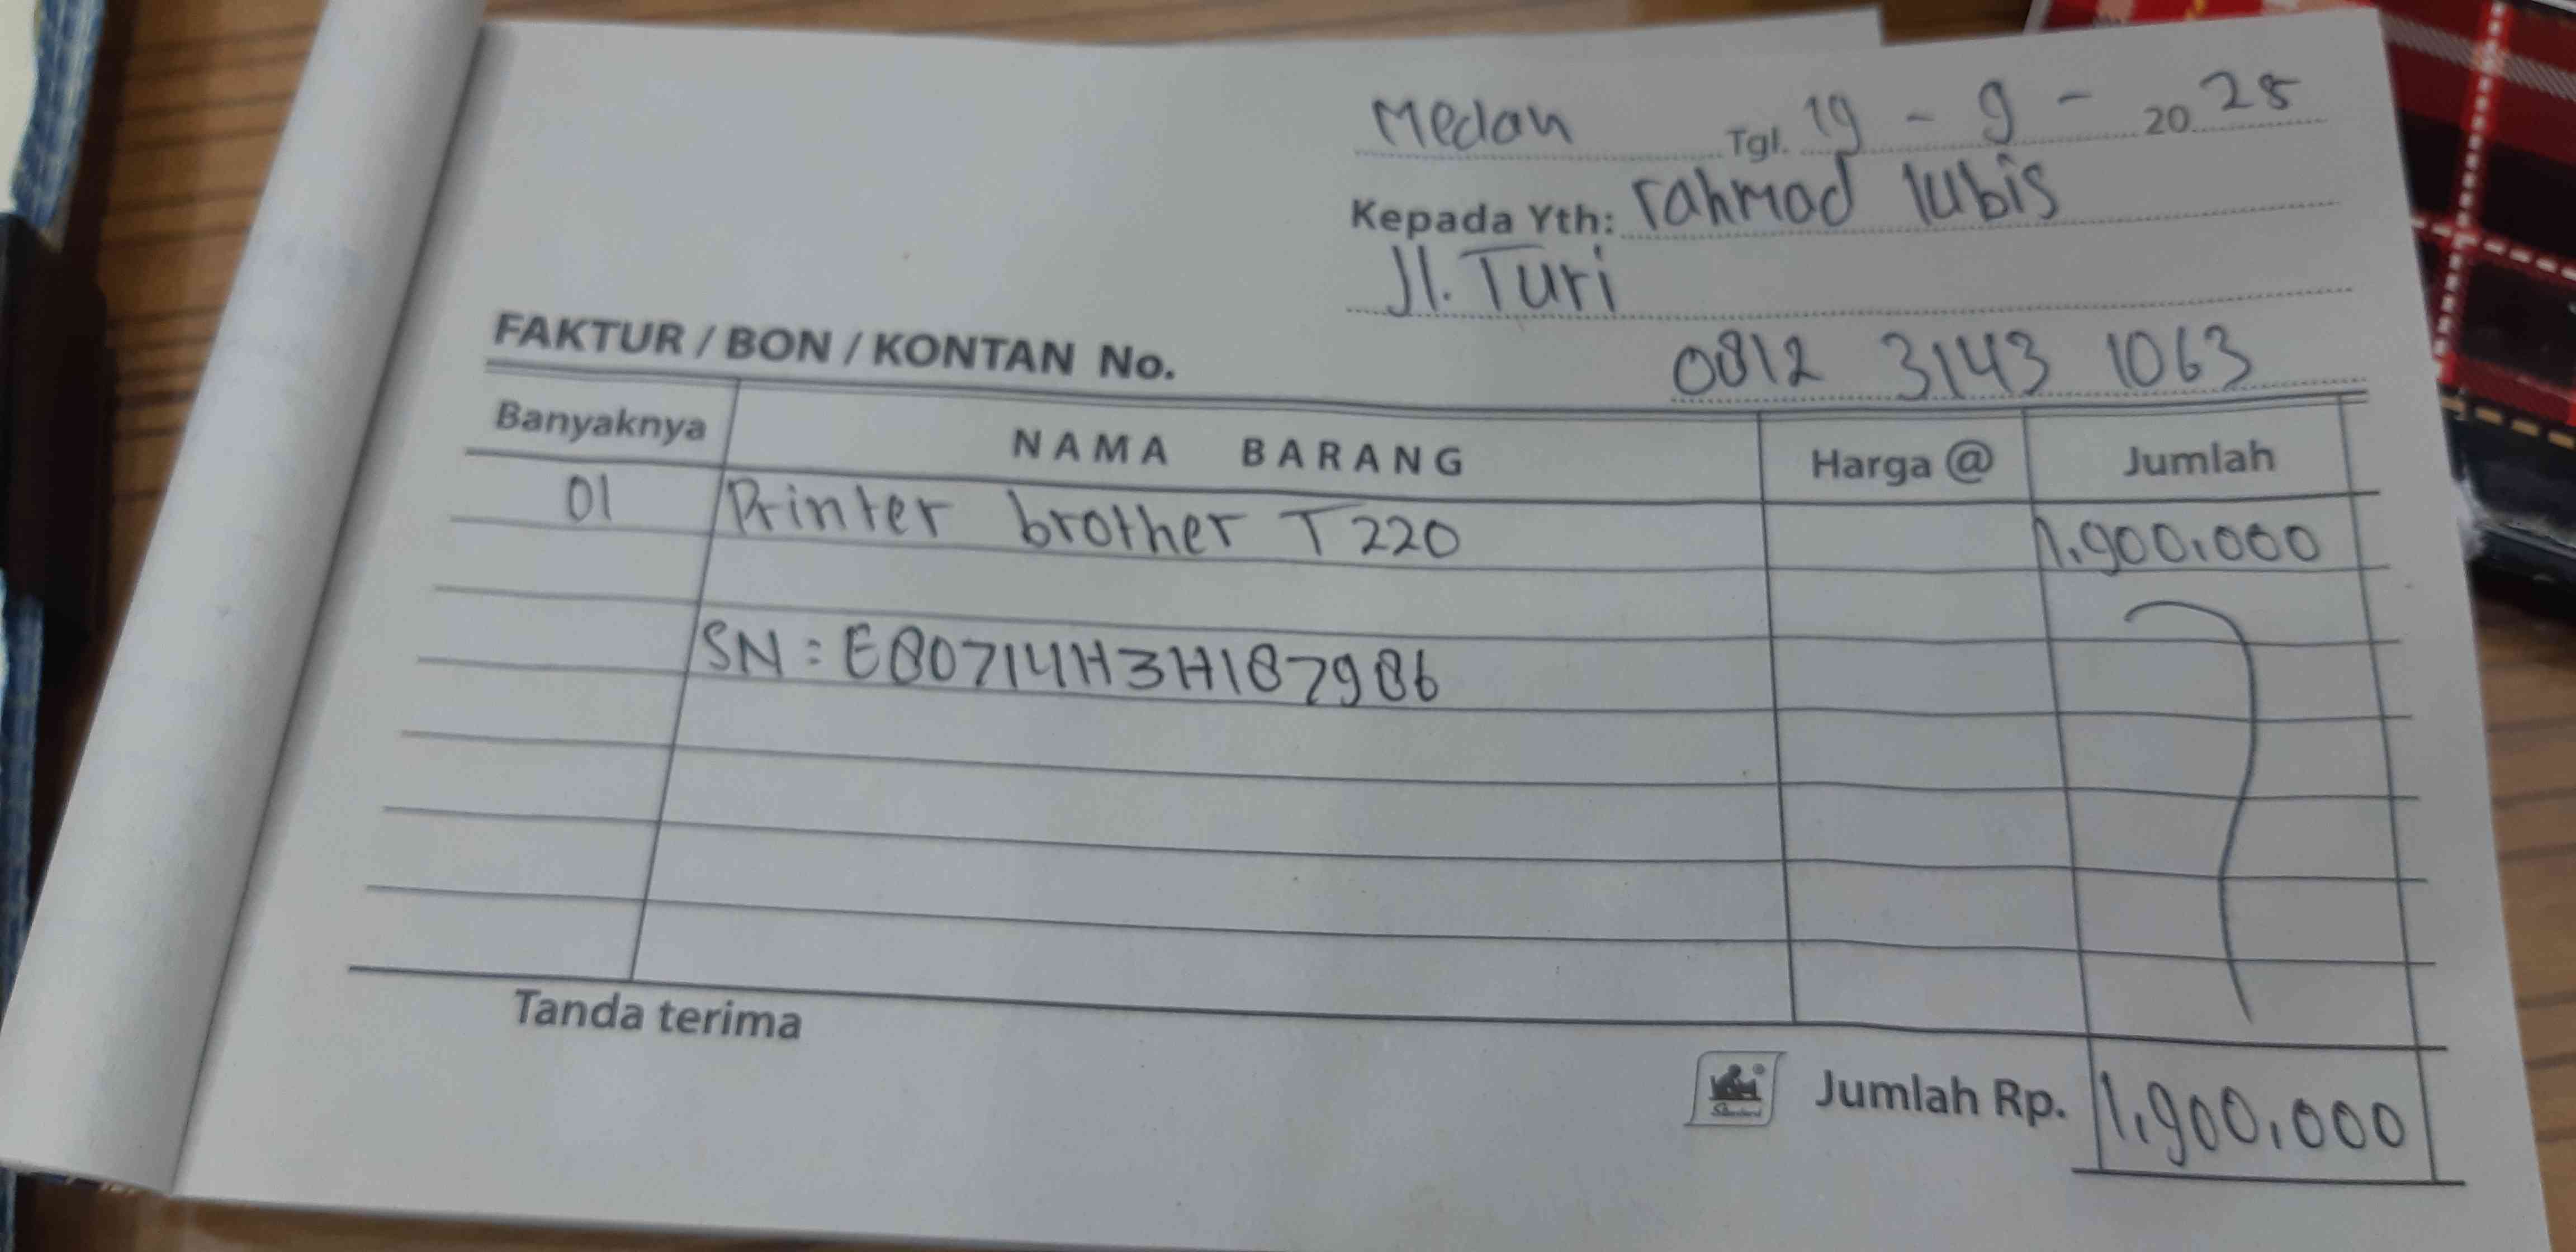 Medan Tgl. 19 - 9 - 20 25
Kepada Yth: rahmad lubis
Jl. Turi
0812 3143 1063
FAKTUR / BON / KONTAN No.
Banyaknya NAMA BARANG Harga @ Jumlah
01 Printer brother T220 1.900.000
SN : E80714H3H187986
Tanda terima
Jumlah Rp. 1.900.000